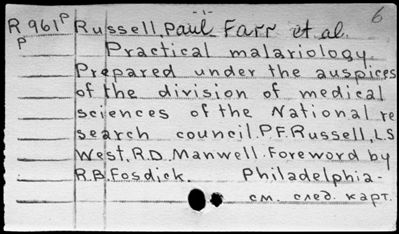 6
R 961P Russell, Paul Farr et al.
P Practical malariology.
Prepared under the auspices
of the division of medical
sciences of the National re
search council. P.F. Russell, L.S
West, R.D. Manwell. Foreword by
R.B. Fosdick. Philadelphia-
см. след. карт.